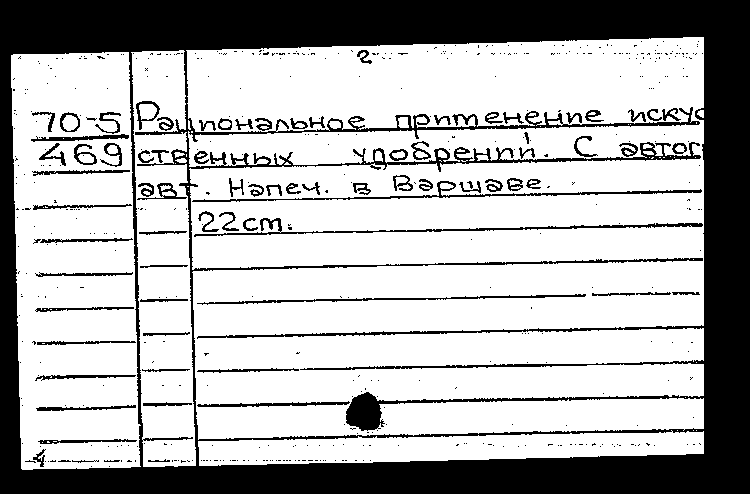 2
70-5 Рациональное применение искус
469 ственных удобрений. С автог
авт. Напеч. в Варшаве.
22cm.